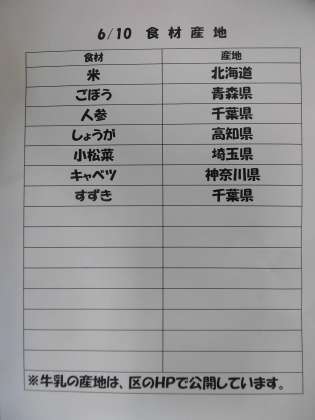 6/10 食材産地
食材 産地
米 北海道
ごぼう 青森県
人参 千葉県
しょうが 高知県
小松菜 埼玉県
キャベツ 神奈川県
すずき 千葉県
※牛乳の産地は、区のHPで公開しています。